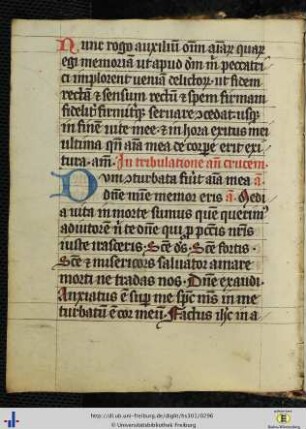 Nunc rogo auxiliū om̄ aīarꝫ quarꝫ
egi memoriam ut apud dm̄ m̄ peccatri
ci implorent veniā delictorꝫ ut fidem
rectā ⁊ sensum rectū ⁊ spem firmam
in fine vite mee ⁊ in hora exitus mei
ultima qn̄ aīa mea de corpē erit exi
tura · am̄. In tribulatione an̄ crucem.
Dum cōturbata fuīt aīa mea a.
dn̄e mīe memor eris a. Medi
a vita in morte sumus quē querim⁹
adiutorē n̄ te dn̄e qui ꝓ pctīs nrīs
iuste irasceris. Scē ds̄. Scē fortis.
Scē ⁊ misericors salvator amare
morti ne tradas nos. Dn̄e exaudi.
Anxiatus ē sup me spc̄ ms̄ in me
turbatū ē cor meū. Factus
http://dl.ub.uni-freiburg.de/diglit/hs301/0296
© Universitätsbibliothek Freiburg